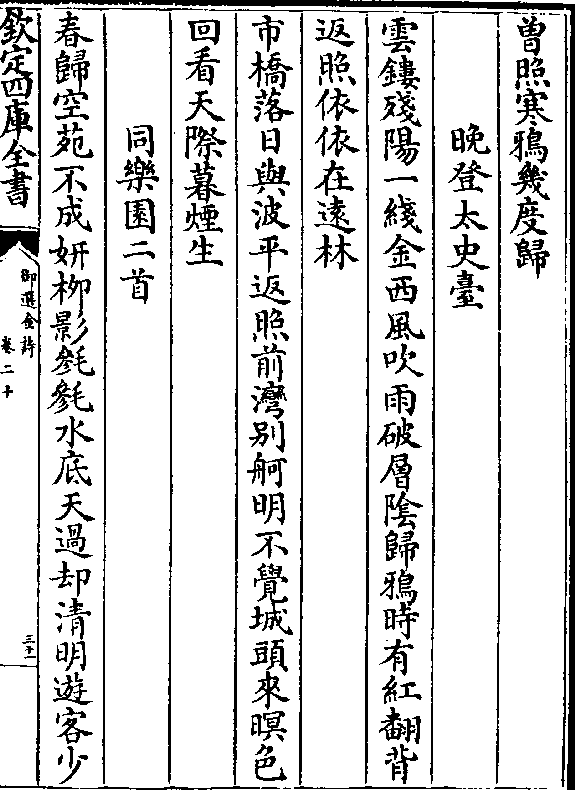 曽照寒鴉幾度歸
晚登太史臺
雲鏤殘陽一綫金西風吹雨破層陰歸鴉時有紅翻背
返照依依在遠林
市橋落日與波平返照前灣別舸明不覺城頭來暝色
回看天際暮煙生
同樂園二首
春歸空苑不成妍柳影毿毿水底天過却清明遊客少
欽定四庫全書
御選金詩
卷二十